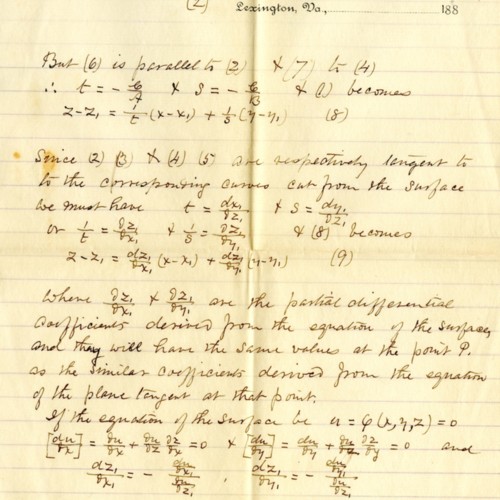 (2) Lexington, Va., 188
But (6) is parallel to (2) & (7) to (4)
∴ t = - C/A & s = - C/B & (1) becomes
z-z₁ = 1/t (x-x₁) + 1/s (y-y₁) (8)
Since (2) (3) & (4) (5) are respectively tangent to
to the corresponding curves cut from the surface
we must have t = dx₁/dz₁ & s = dy₁/dz₁
or 1/t = ∂z₁/∂x₁ & 1/s = ∂z₁/∂y₁ & (8) becomes
z-z₁ = dz₁/dx₁ (x-x₁) + dz₁/dy₁ (y-y₁) (9)
Where ∂z₁/∂x₁ & ∂z₁/∂y₁ are the partial differential
coefficients derived from the equation of the surface,
and they will have the same values at the point P.
as the similar coefficients derived from the equation
of the plane tangent at that point.
If the equation of the surface be u = φ(x,y,z) = 0
[du/dx] = ∂u/∂x + ∂u/∂z ∂z/∂x = 0 & [du/dy] = du/dy + ∂u/∂z ∂z/∂y = 0 and
dz₁/dx₁ = - du/dx₁ / du/dz₁ , dz₁/dy₁ = - du/dy₁ / du/dz₁